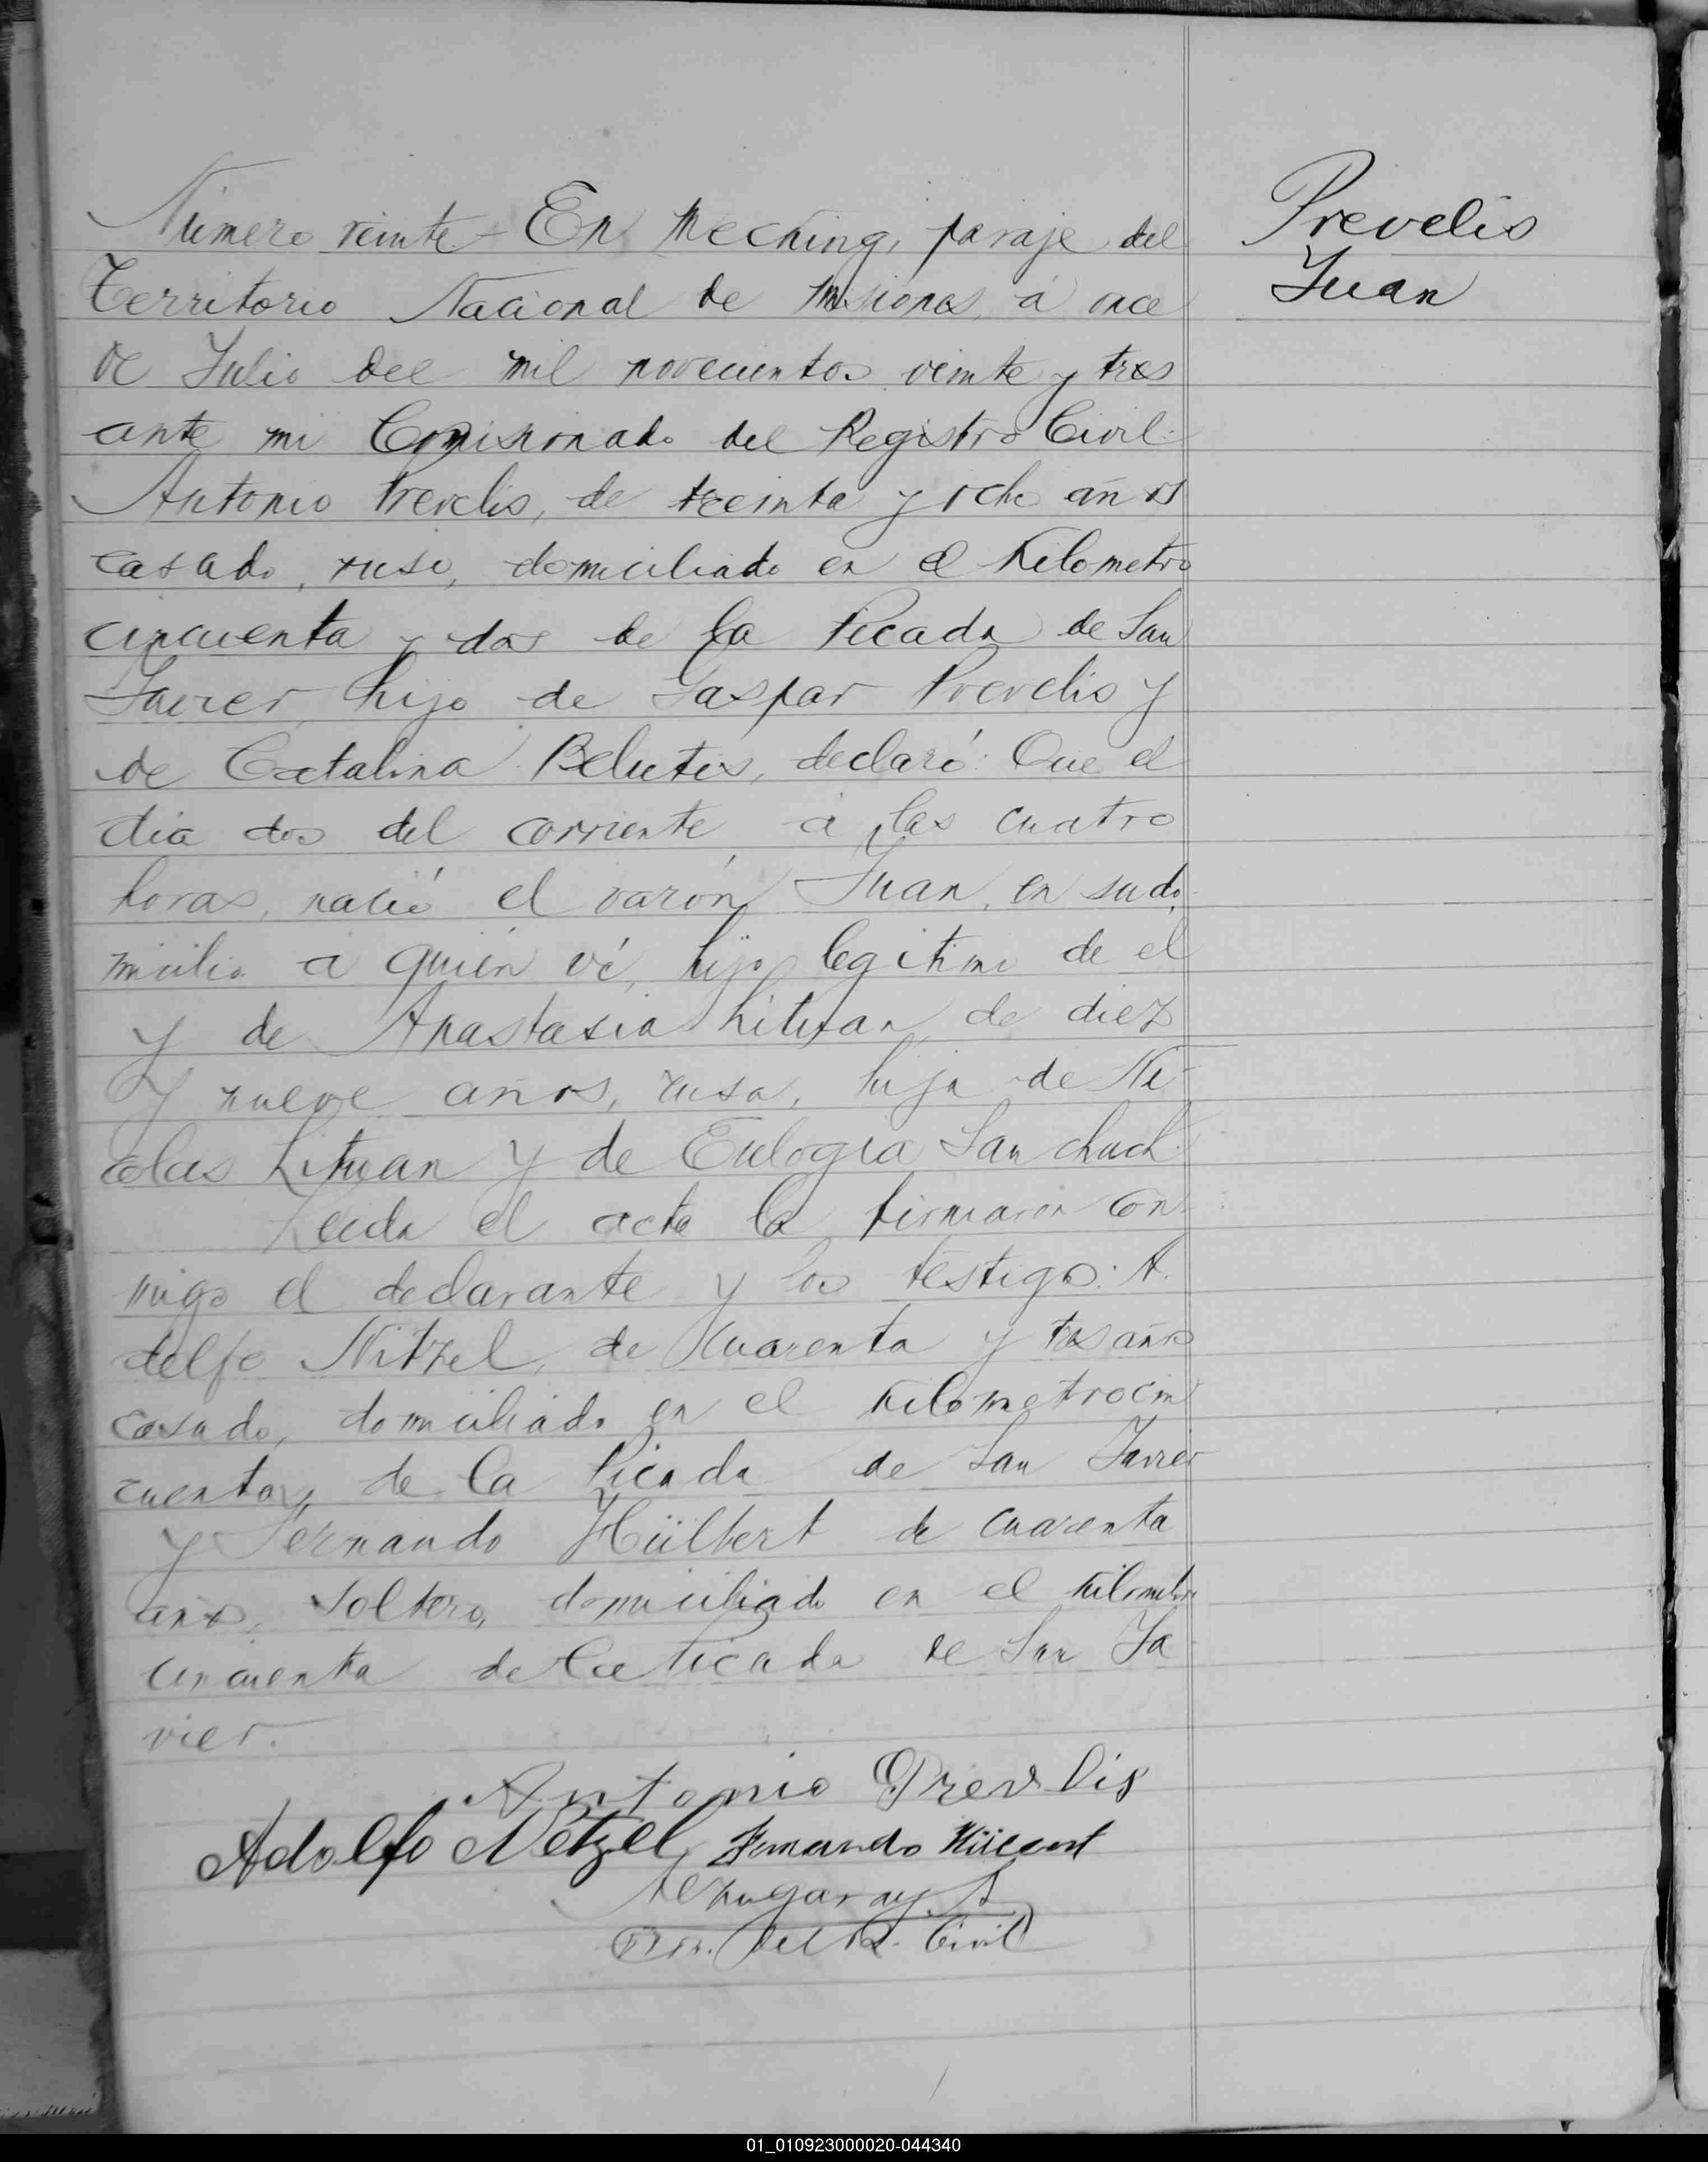 Prevelis
Juan
Número veinte - En Meching, paraje del
Territorio Nacional de Misiones, á once
de Julio del mil novecientos veinte y tres
ante mi Comisionado del Registro Civil
Antonio Prevelis, de treinta y ocho años
casado, ruso, domiciliado en el Kilometro
cincuenta y dos de la Picada de San
Javier, hijo de Gaspar Prevelis y
de Catalina Belutis, declaró: Que el
dia dos del corriente, á las cuatro
horas, nació el varón Juan, en su do-
micilio a quién ví, hijo legitimo de el
y de Anastasia Lituan, de diez
y nueve años, rusa, hija de Ni-
colas Lituan y de Eulogia Sanchuch.
Leida el acta la firmaron con-
migo el declarante y los testigos: A.
delfo Nitzel, de cuarenta y tres años
casado, domiciliado en el Kilometro cin
cuenta, de la Picada de San Javier
y Fernando Hülbert de cuarenta
años, soltero, domiciliado en el Kilometro
cincuenta de la Picada de San Ja
vier.
Antonio Prevelis
Adolfo Netzel Fernando
del R. Civil
01_010923000020-044340